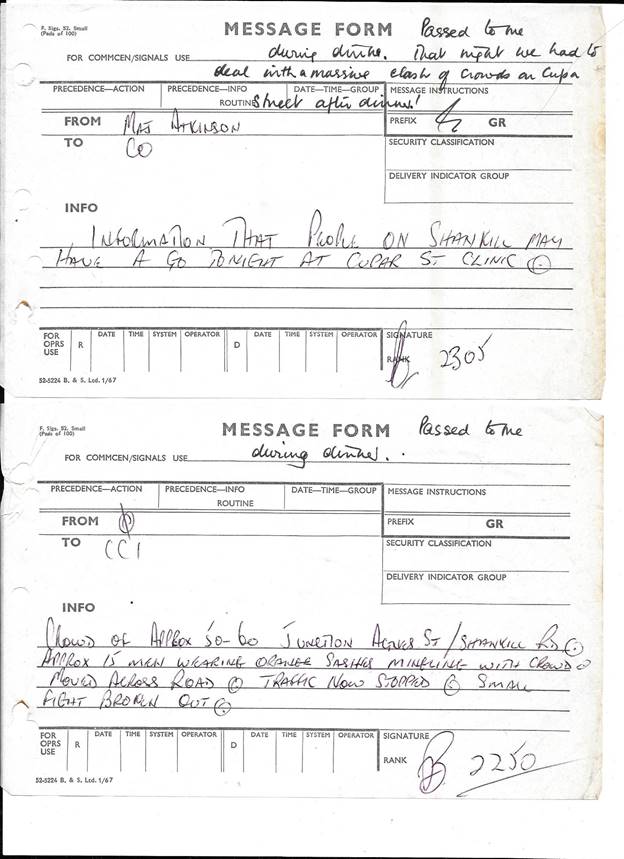 F. Sigs. 52. Small
(Pads of 100)
MESSAGE FORM
Passed to me
FOR COMMCEN/SIGNALS USE
during dinner. That night we had to
deal with a massive clash of crowds on Cupa
PRECEDENCE—ACTION
PRECEDENCE—INFO
DATE—TIME—GROUP
MESSAGE INSTRUCTIONS
ROUTINE
Street after dinner!
FROM
MAJ ATKINSON
PREFIX
GR
TO
CO
SECURITY CLASSIFICATION
DELIVERY INDICATOR GROUP
INFO
INFORMATION THAT PEOPLE ON SHANKILL MAY
HAVE A GO TONIGHT AT CUPAR ST CLINIC
FOR OPRS USE
R
DATE
TIME
SYSTEM
OPERATOR
D
DATE
TIME
SYSTEM
OPERATOR
SIGNATURE
RANK
2305
52-5224 B. & S. Ltd. 1/67
F. Sigs. 52. Small
(Pads of 100)
MESSAGE FORM
Passed to me
FOR COMMCEN/SIGNALS USE
during dinner.
PRECEDENCE—ACTION
PRECEDENCE—INFO
DATE—TIME—GROUP
MESSAGE INSTRUCTIONS
ROUTINE
FROM
PREFIX
GR
TO
CC1
SECURITY CLASSIFICATION
DELIVERY INDICATOR GROUP
INFO
CROWD OF APPROX 50-60 JUNCTION AGNES ST / SHANKILL RD
APPROX 15 MEN WEARING ORANGE SASHES MINGLING WITH CROWD
MOVED ACROSS ROAD TRAFFIC NOW STOPPED SMALL
FIGHT BROKEN OUT
FOR OPRS USE
R
DATE
TIME
SYSTEM
OPERATOR
D
DATE
TIME
SYSTEM
OPERATOR
SIGNATURE
RANK
2250
52-5224 B. & S. Ltd. 1/67